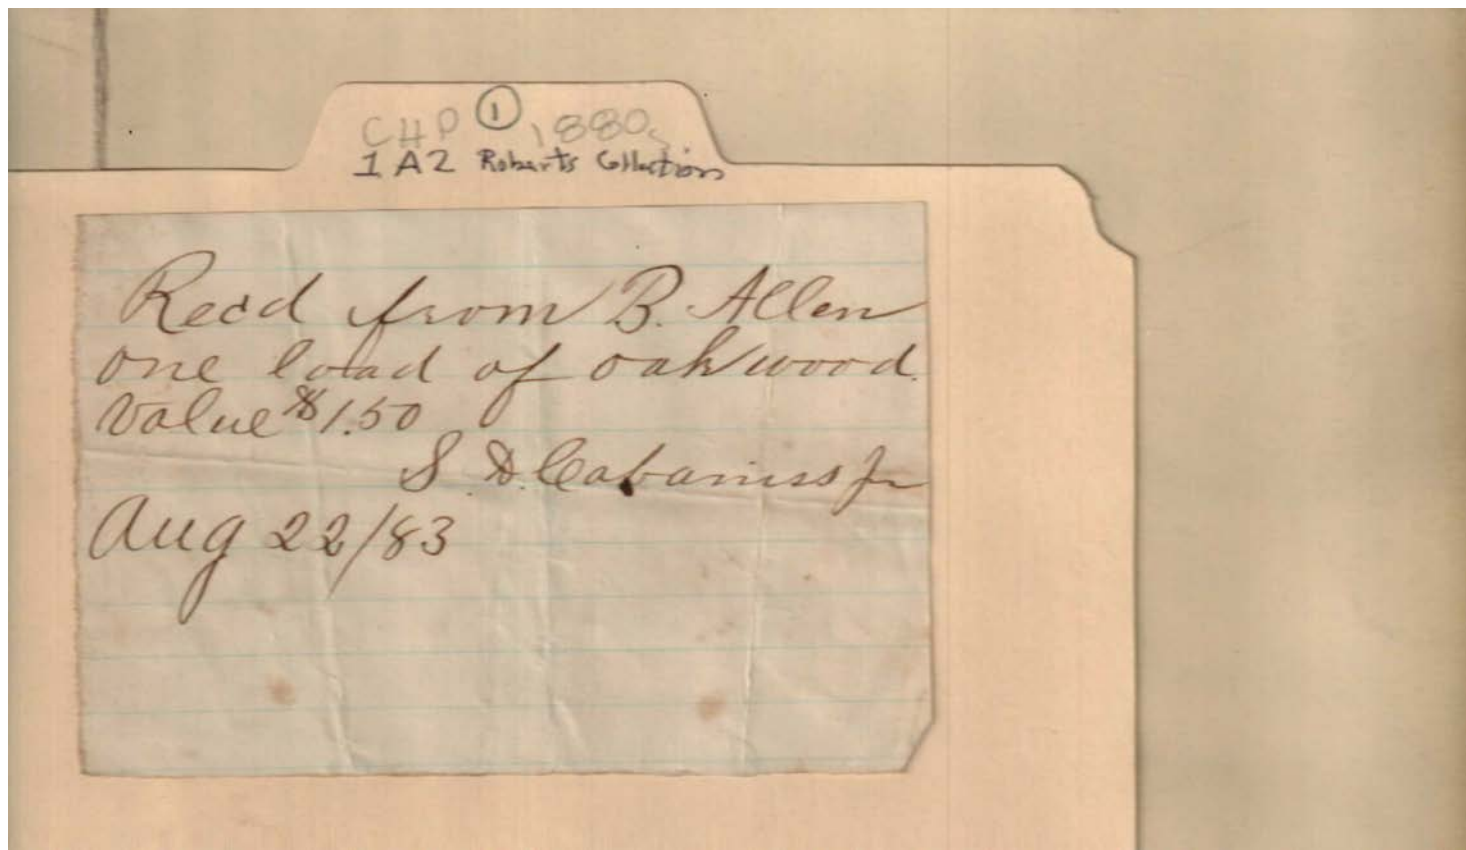 CHP ① 1880s
1A2 Roberts Collection
Recd from B. Allen
one load of oak wood.
Value $1.50
S. D. Cabaniss Jr
Aug 22/83